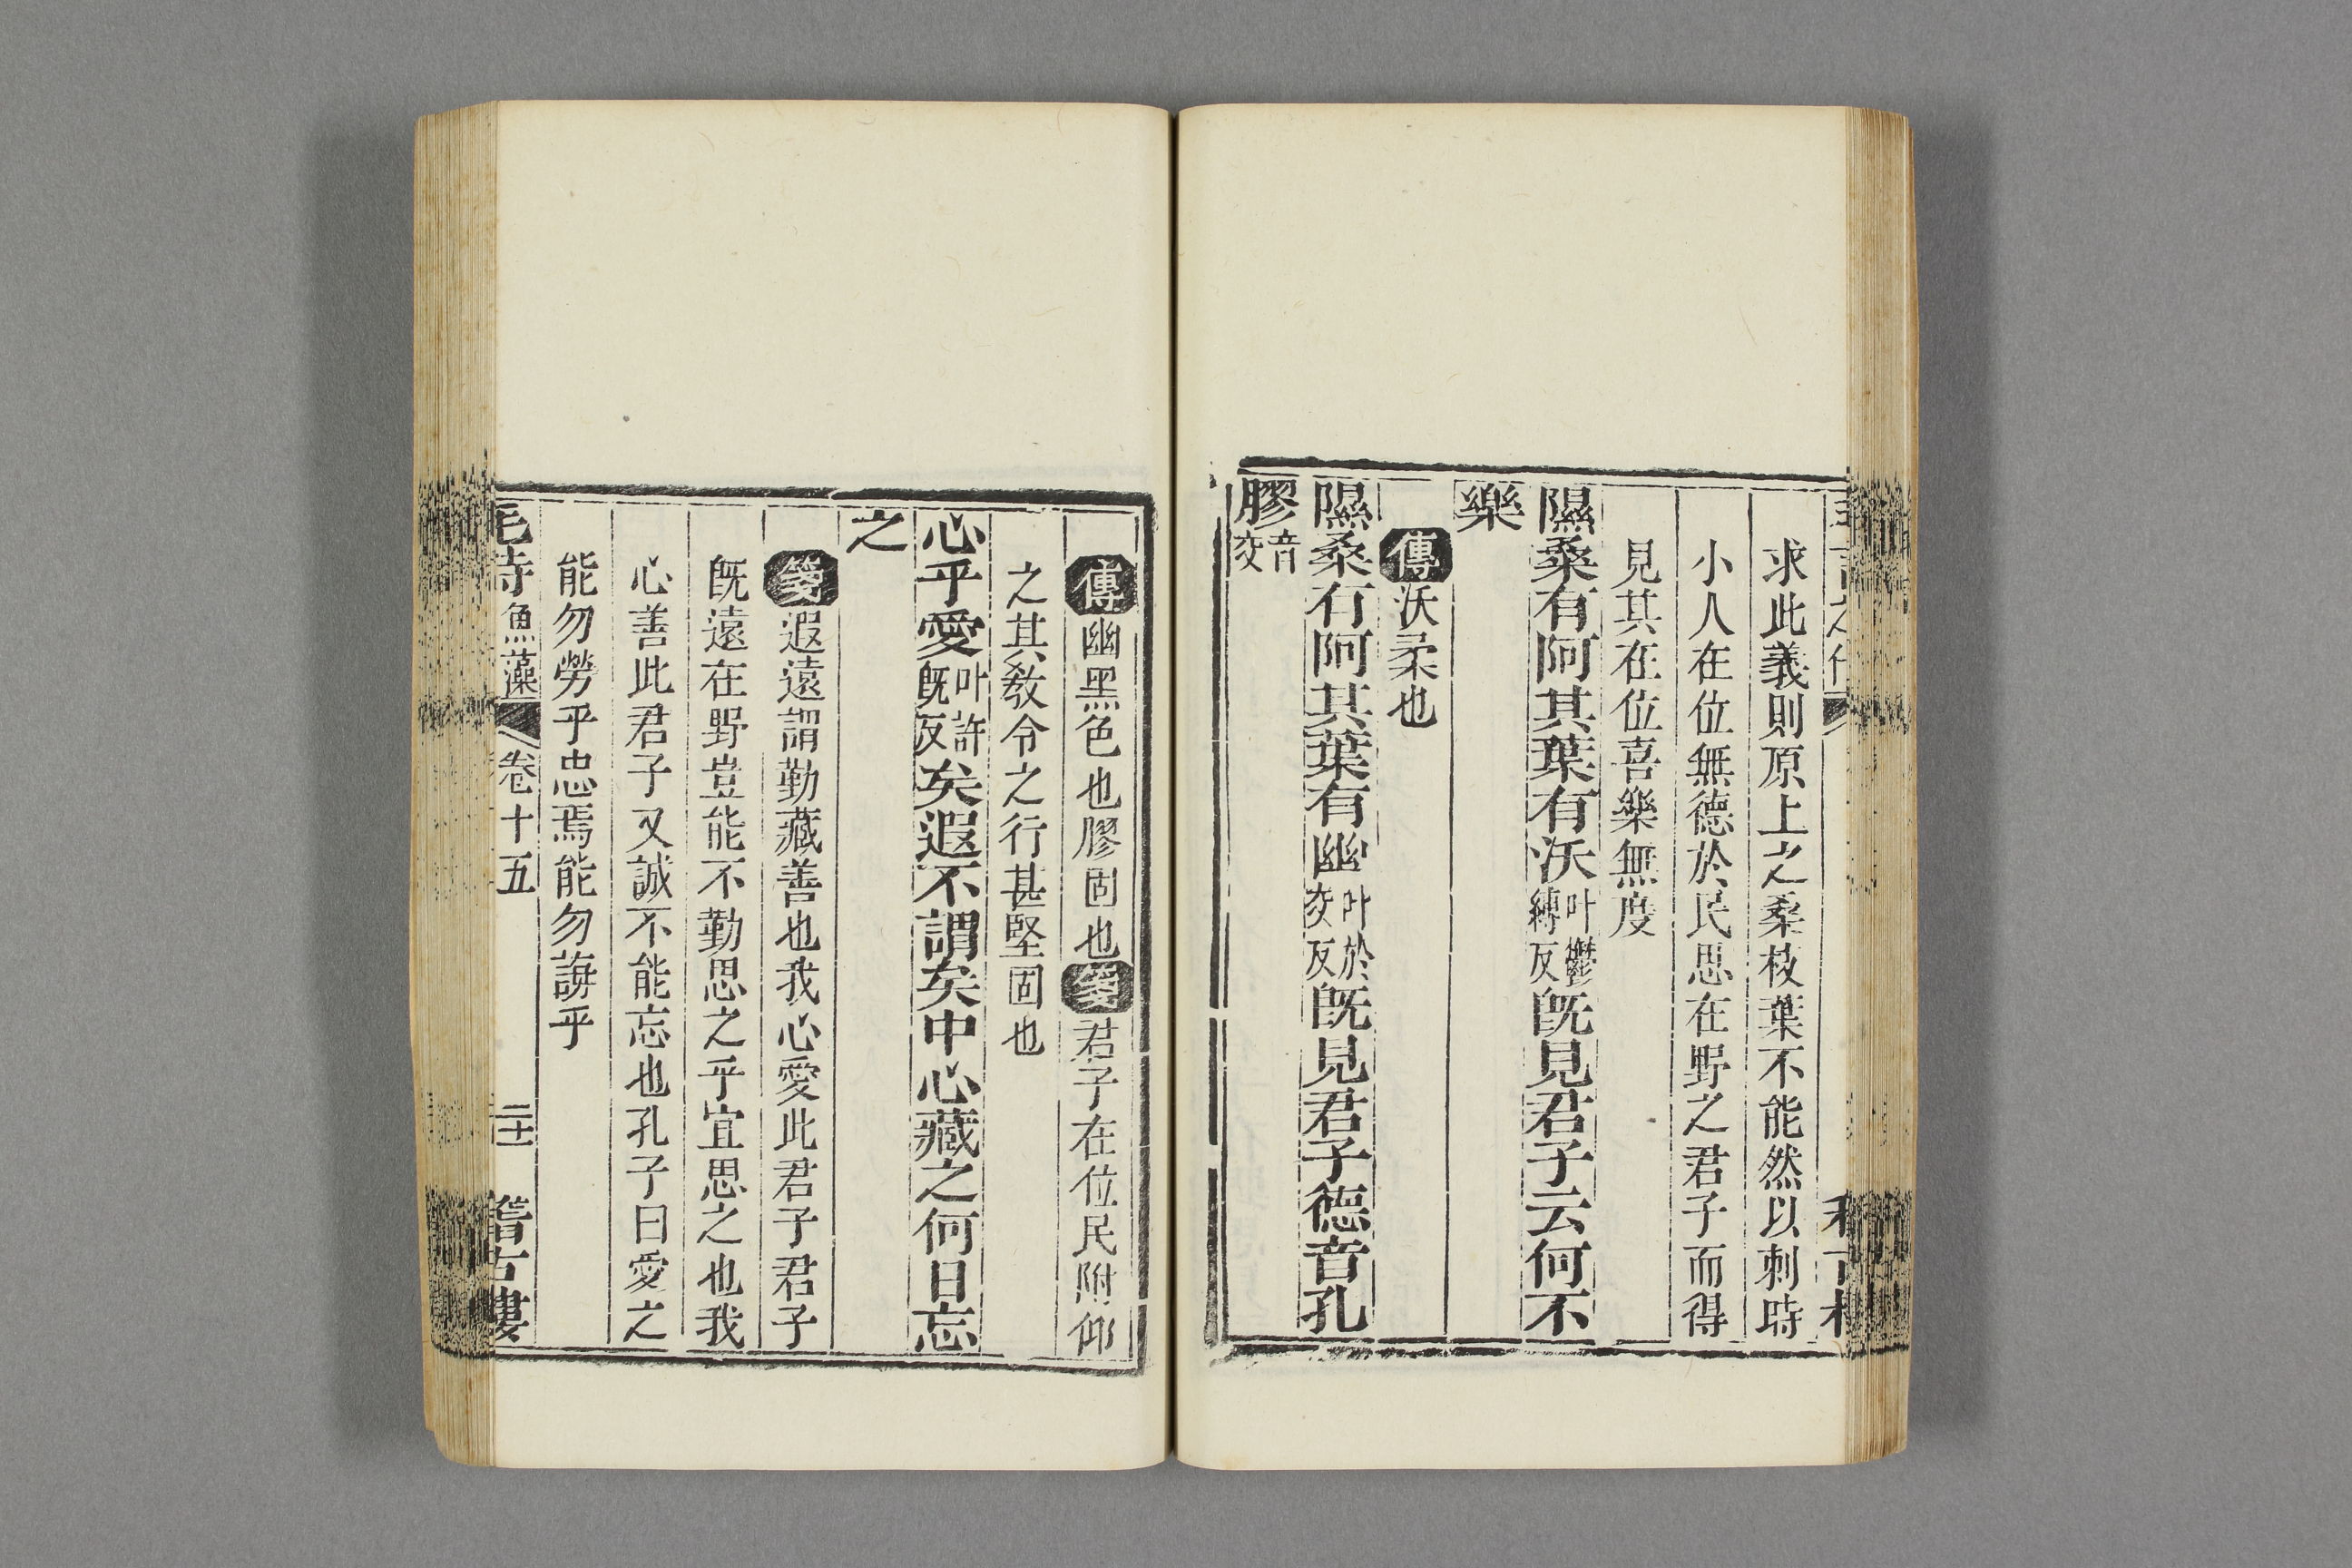 求此義則原上之桑枝葉不能然以刺時
小人在位無德於民思在野之君子而得
見其在位喜樂無度
隰桑有阿其葉有沃叶鬱縛反既見君子云何不
樂
傳沃柔也
隰桑有阿其葉有幽叶於交反既見君子德音孔
膠音交
傳幽黑色也膠固也箋君子在位民附仰
之其敎令之行甚堅固也
心乎愛叶許既反矣遐不謂矣中心藏之何日忘
之
箋遐遠謂勤藏善也我心愛此君子君子
旣遠在野豈能不勤思之乎宜思之也我
心善此君子又誠不能忘也孔子曰愛之
能勿勞乎忠焉能勿誨乎
毛詩魚藻 卷十五 二十 稽古樓